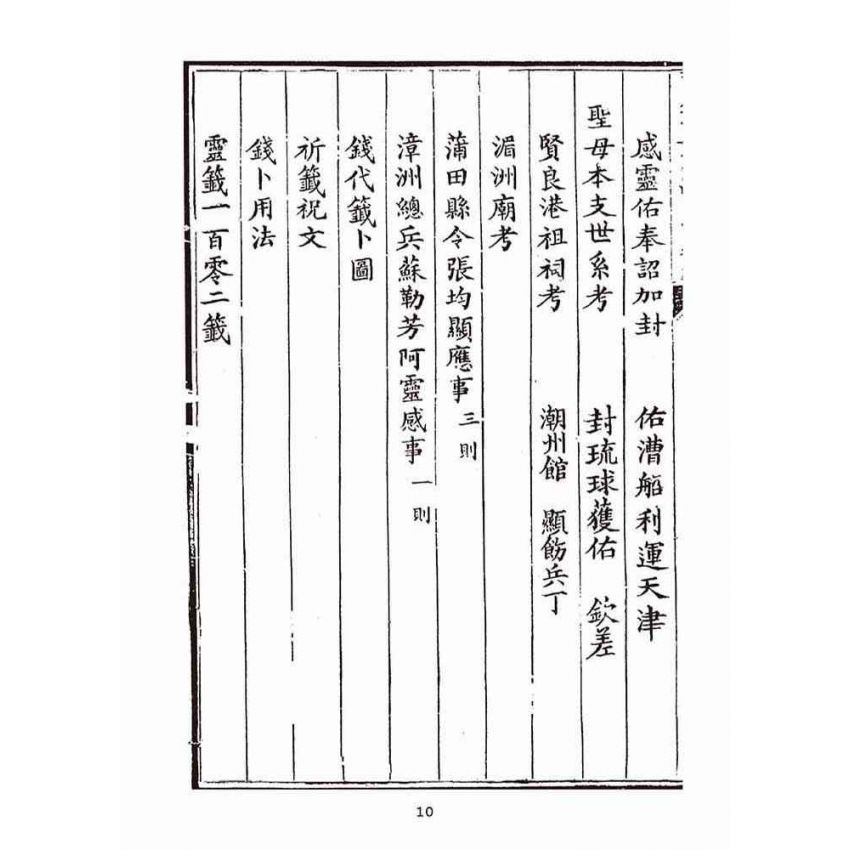 感靈佑奉詔加封　佑漕船利運天津
聖母本支世系考　封琉球獲佑　欽差
賢良港祖祠考　潮州館　顯飭兵丁
湄洲廟考
蒲田縣令張均顯應事三則
漳洲總兵蘇勒芳阿靈感事一則
錢代籤卜圖
祈籤祝文
錢卜用法
靈籤一百零二籤
10